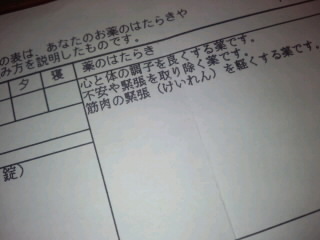 の表は、あなたのお薬のはたらきや
み方を説明したものです。
夕 寝 薬のはたらき
心と体の調子を良くする薬です。
不安や緊張を取り除く薬です。
筋肉の緊張（けいれん）を軽くする薬です。
錠）